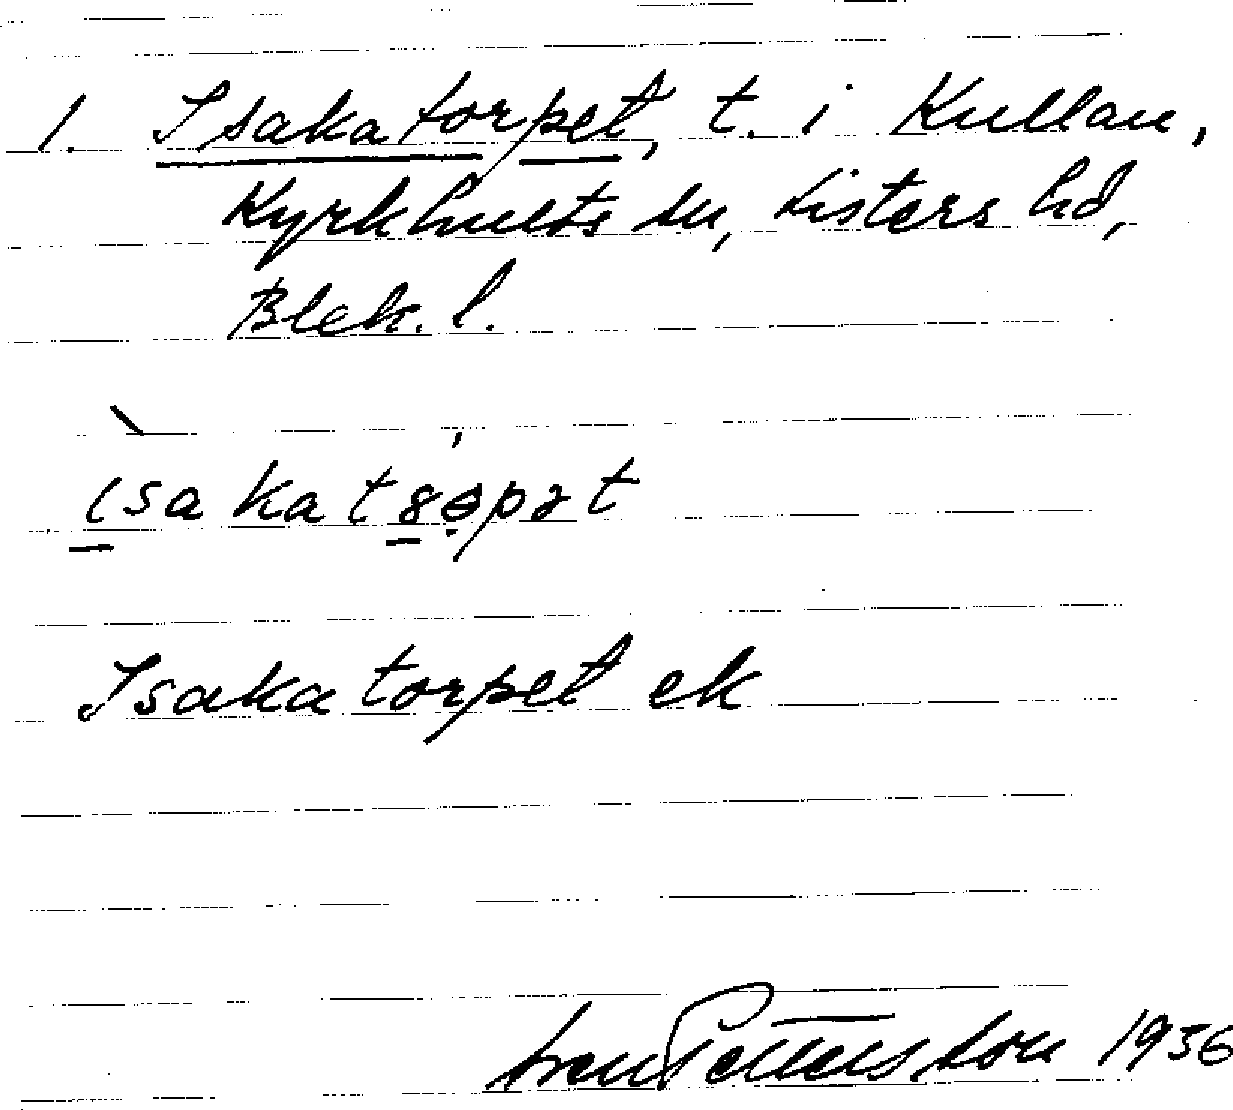 1. Isakatorpet, t. i Kullan,
Kyrkhults sn, Listers hd,
Blek. l.
Isakatorpet ek
Sven Pettersson 1936